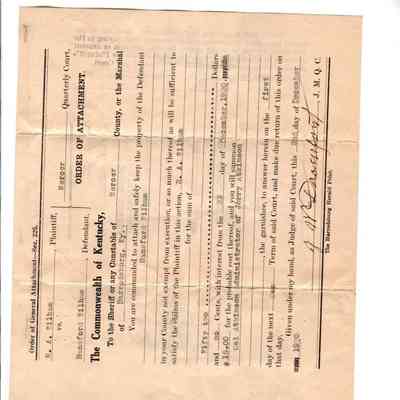 Order of General Attachment—Sec. 220.
Mercer Quarterly Court,
R. A. Tilham Plaintiff,
vs. ORDER OF ATTACHMENT.
Hansford Tilham Defendant,
The Commonwealth of Kentucky,
To the Sheriff or any Constable of Mercer County, or the Marshal
of Harrodsburg, Ky.
You are commanded to attach and safely keep the property of the Defendant
Hansford Tilham
in your County not exempt from execution, or so much thereof as will be sufficient to
satisfy the claim of the Plaintiff in this action, R. A. Tilham
for the sum of
Fifty and Dollars
and no Cents, with interest from the day of December,
$15.00 for the probable cost thereof, and you will summon
Cal Atkinson Administrator of Jerry Atkinson
the garnishee, to answer herein on the first
day of the next Term of said Court, and make due return of this order on
that day. Given under my hand, as Judge of said Court, this day of December
J. M. Q. C.
The Harrodsburg Herald Print.